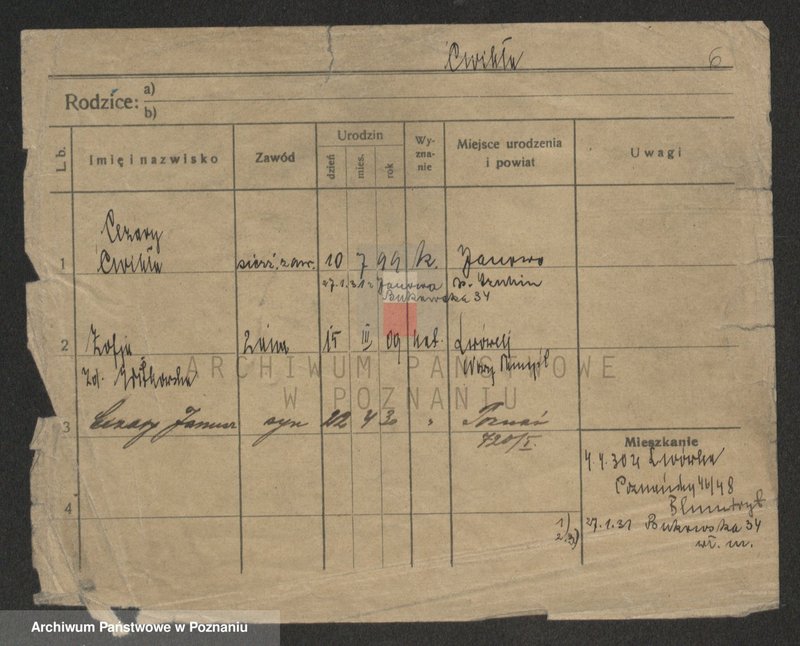 Ćwikła 6
Rodzice: a)
b)
L. b. Imię i nazwisko Zawód Urodzin dzień mies. rok Wy-zna-nie Miejsce urodzenia i powiat Uwagi
Cezary
1 Ćwikła sierż. zaw. 10 7 99 k. Janowo
27.1.31 z Janowa p. Szubin
Bukowska 34
2 Zofja żona 15 III 09 kat. Lwówek
Nowy Tomyśl
ARCHIWUM PAŃSTWOWE
W POZNANIU
3 Cezary Janusz syn 22 4 30 " Poznań
420/I.
Mieszkanie
4.4.30 z Lwówka
Poznańska 46/48
4
1) 27.1.31 Bukowska 34
2/3) wł. m.
Archiwum Państwowe w Poznaniu